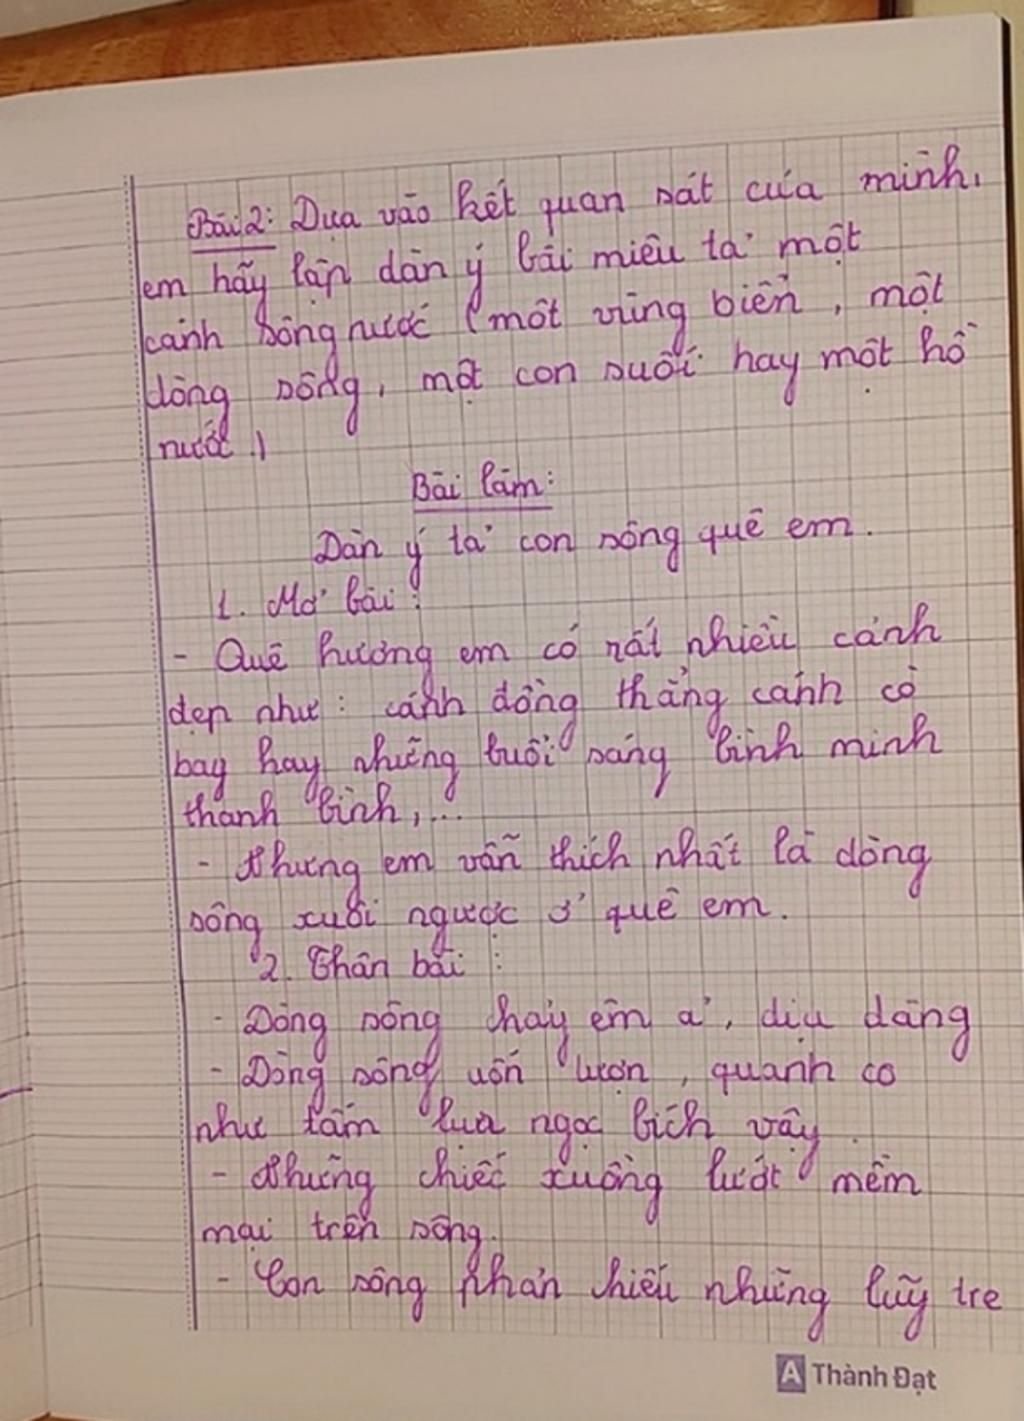 Bài 2: Dựa vào kết quan sát của mình,
em hãy lập dàn ý bài miêu tả một
cảnh sông nước (một vùng biển, một
dòng sông, một con suối hay một hồ
nước)
Bài làm:
Dàn ý tả con sông quê em.
1. Mở bài:
- Quê hương em có rất nhiều cảnh
đẹp như: cánh đồng thẳng cánh cò
bay hay những buổi sáng bình minh
thanh bình,...
- Nhưng em vẫn thích nhất là dòng
sông xuôi ngược ở quê em.
2. Thân bài:
- Dòng sông chảy êm ả, dịu dàng
- Dòng sông uốn lượn, quanh co
như tấm lụa ngọc bích vậy.
- Những chiếc xuồng lướt mềm
mại trên sông.
- Con sông phản chiếu những lũy tre
A Thành Đạt